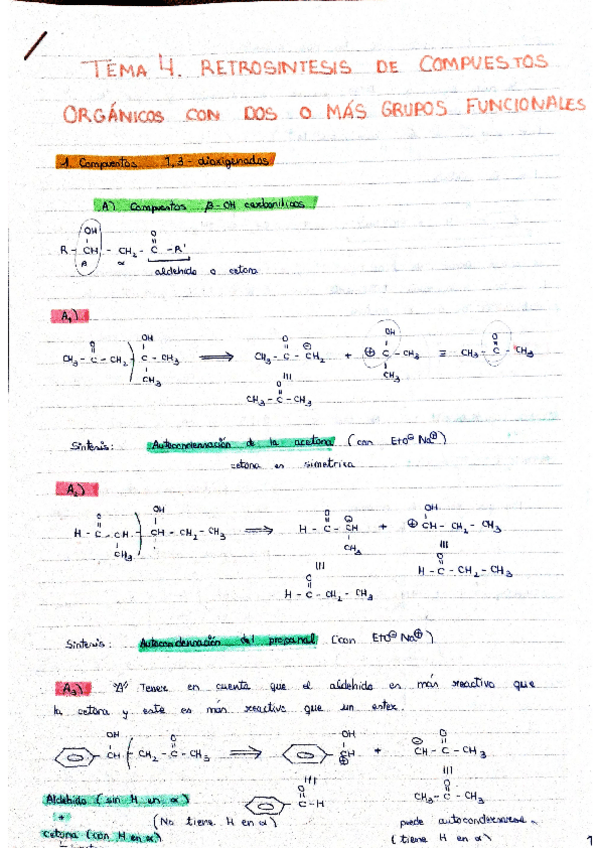 TEMA 4. RETROSINTESIS DE COMPUESTOS
ORGÁNICOS CON DOS O MÁS GRUPOS FUNCIONALES
1. Compuestos 1,3-dioxigenados
A) Compuestos β-OH carbonílicos
OH O
R - CH - CH2 - C - R'
β α
aldehido o cetona
A1)
O OH O ⊖ OH O
CH3 - C - CH2 C - CH3 ⟹ CH3 - C - CH2 + ⊕ C - CH3 ≡ CH3 - C - CH3
CH3 O CH3
CH3 - C - CH3
Síntesis: Autocondensación de la acetona (con EtO⊖ Na⊕)
cetona es simetrica
A2)
O OH O ⊖ OH
H - C - CH CH - CH2 - CH3 ⟹ H - C - CH + ⊕ CH - CH2 - CH3
CH3 CH3
O O
H - C - CH2 - CH3 H - C - CH2 - CH3
Síntesis: Autocondensación del propanal (con EtO⊖ Na⊕)
A3) Tener en cuenta que el aldehido es más reactivo que
la cetona y este es más reactivo que un ester.
OH O OH ⊖ O
CH CH2 - C - CH3 ⟹ CH + CH - C - CH3
⊕
O O
C - H CH3 - C - CH3
Aldehido (sin H en α)
+
cetona (con H en α)
(No tiene H en α)
puede autocondensarse
(tiene H en α)
1